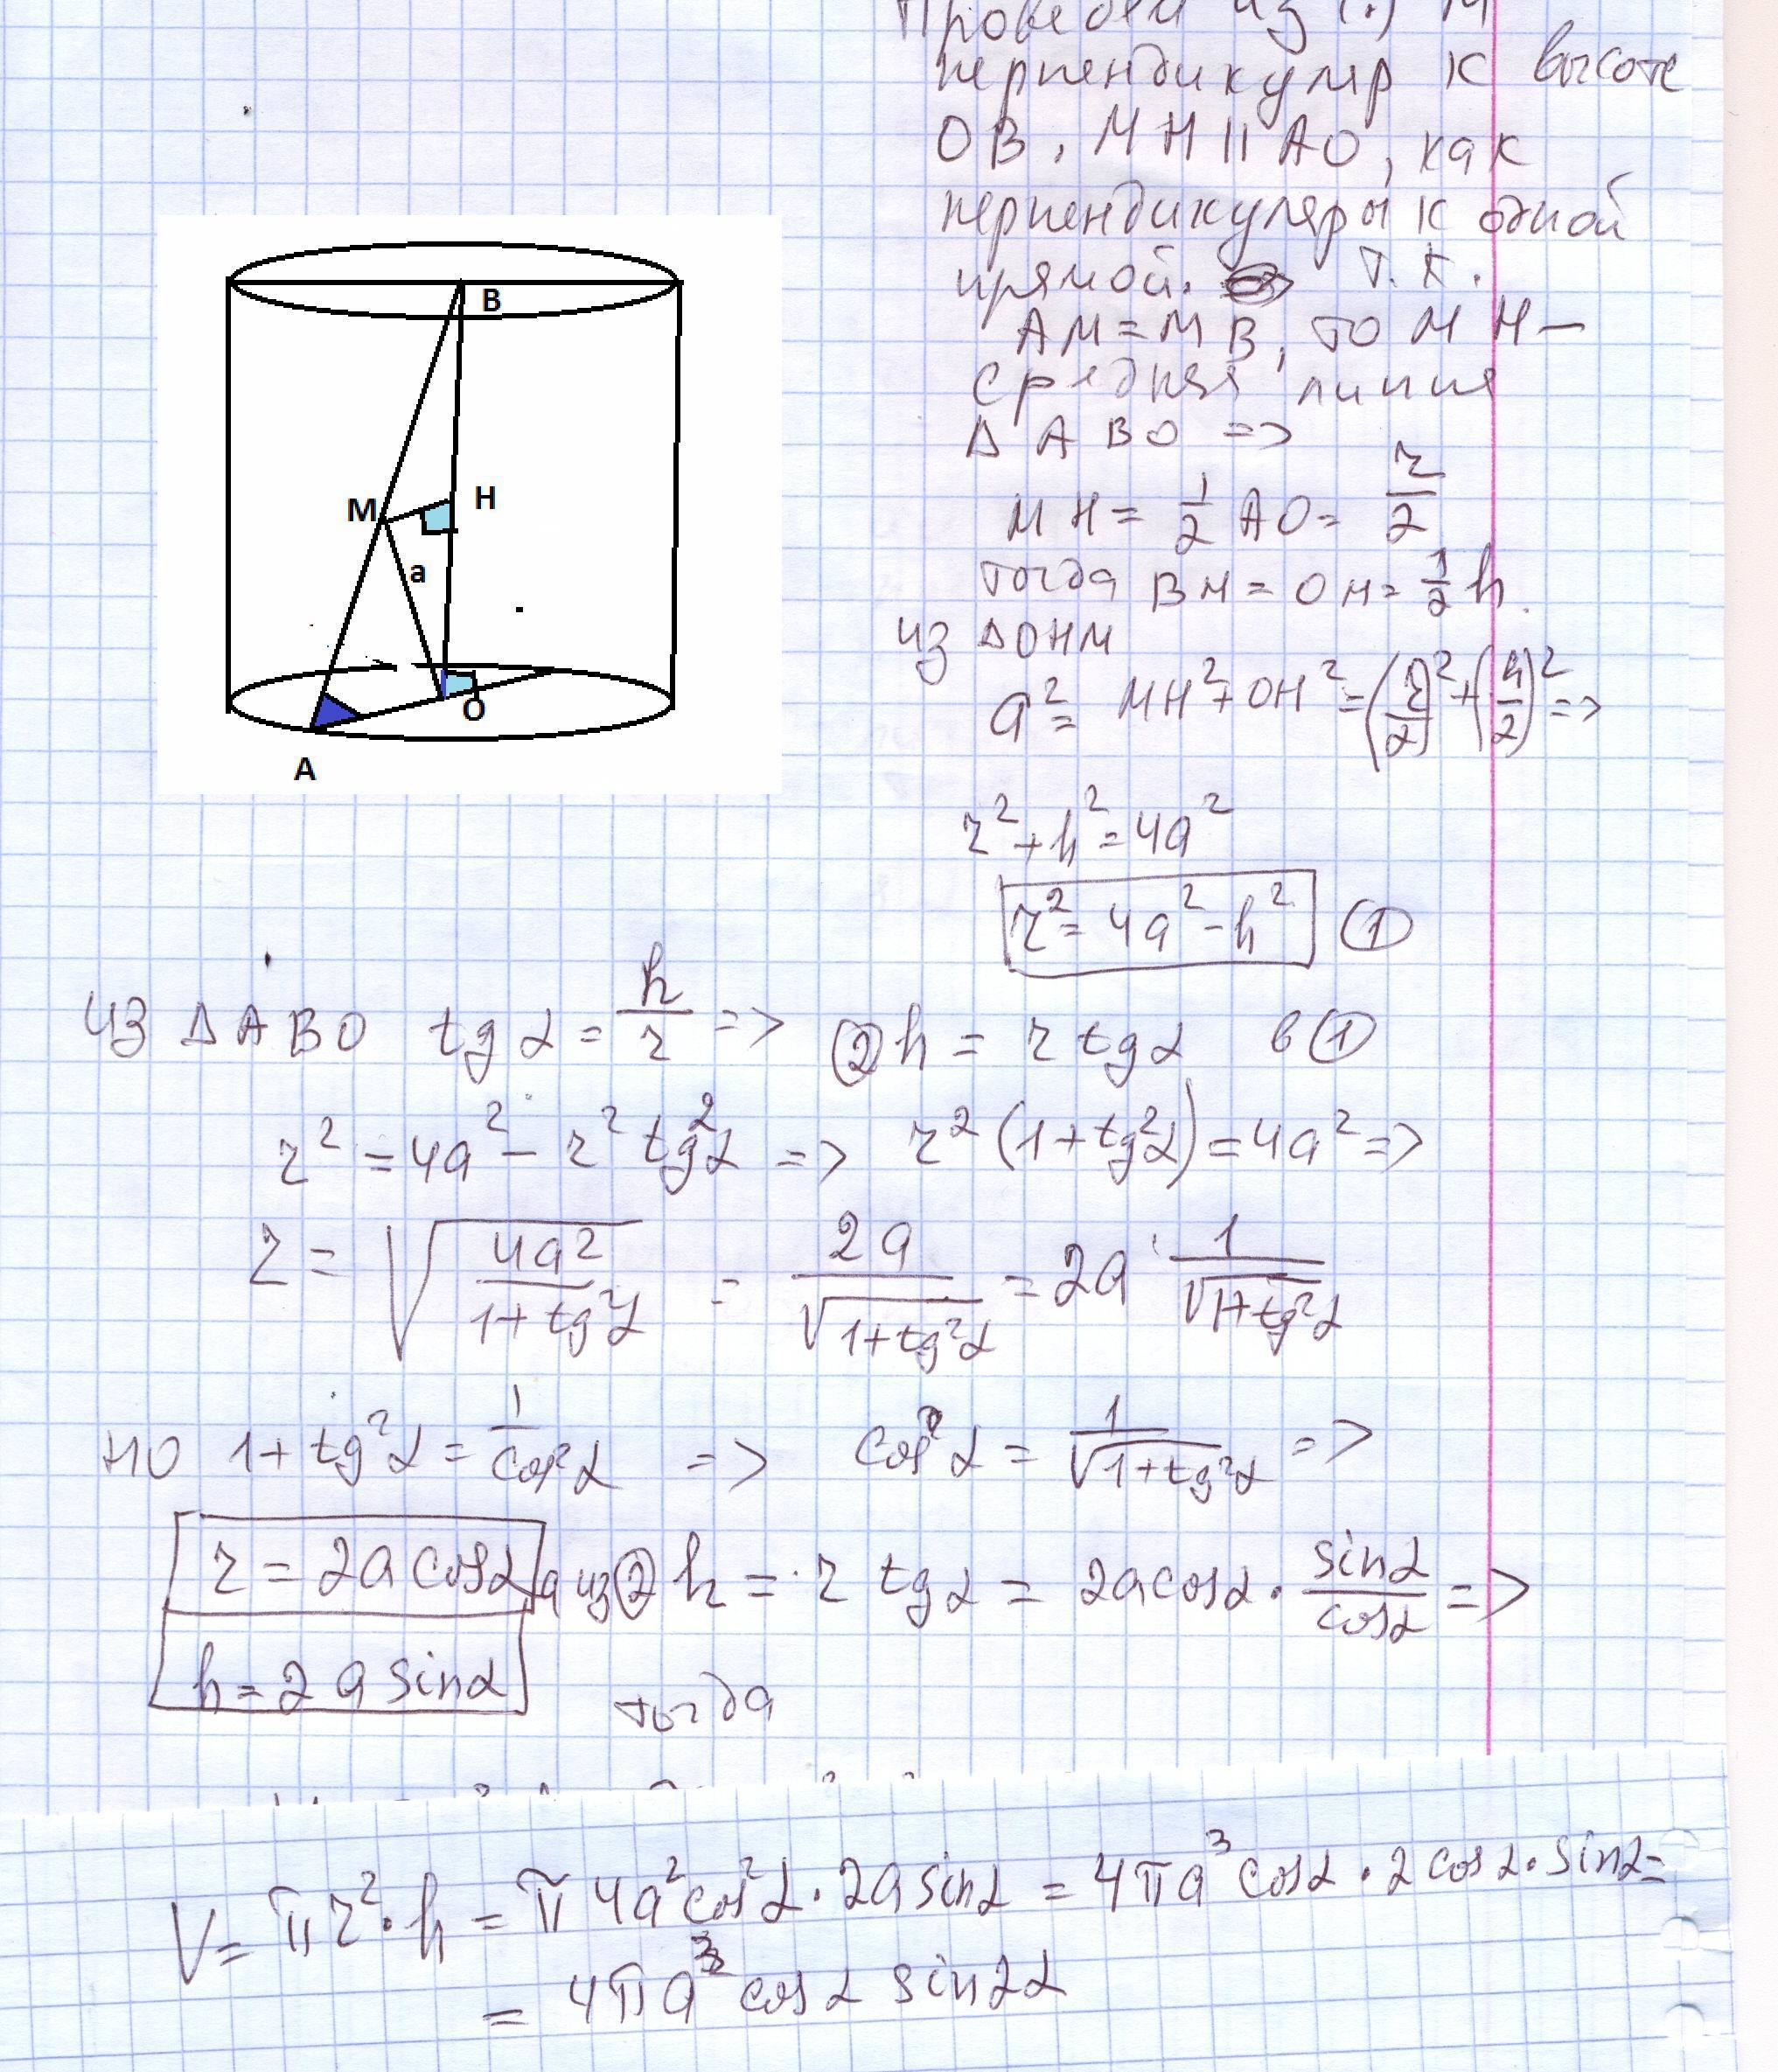 Проведем из (.) М
перпендикуляр к высоте
OB, MH || AO, как
перпендикуляры к одной
прямой. Т.К.
AM = MB, то MH –
средняя линия
Δ ABO =>
MH = 1/2 AO = r/2
тогда BH = OH = 1/2 h.
из ΔOHM
a² = MH² + OH² = (r/2)² + (h/2)² =>
r² + h² = 4a²
r² = 4a² - h² ①
B
M
H
a
O
A
из ΔABO tgα = h/r => ② h = r tgα в ①
r² = 4a² - r² tg²α => r² (1 + tg²α) = 4a² =>
r = √(4a²/(1 + tg²α)) = 2a/√(1 + tg²α) = 2a · 1/√(1 + tg²α)
но 1 + tg²α = 1/cos²α => cos α = 1/√(1 + tg²α) =>
r = 2a cosα, а из ② h = r tgα = 2a cosα · sinα/cosα =>
h = 2a sinα тогда
V = πr² · h = π 4a² cos²α · 2a sinα = 4πa³ cosα · 2 cosα · sinα =
= 4πa³ cosα sin2α